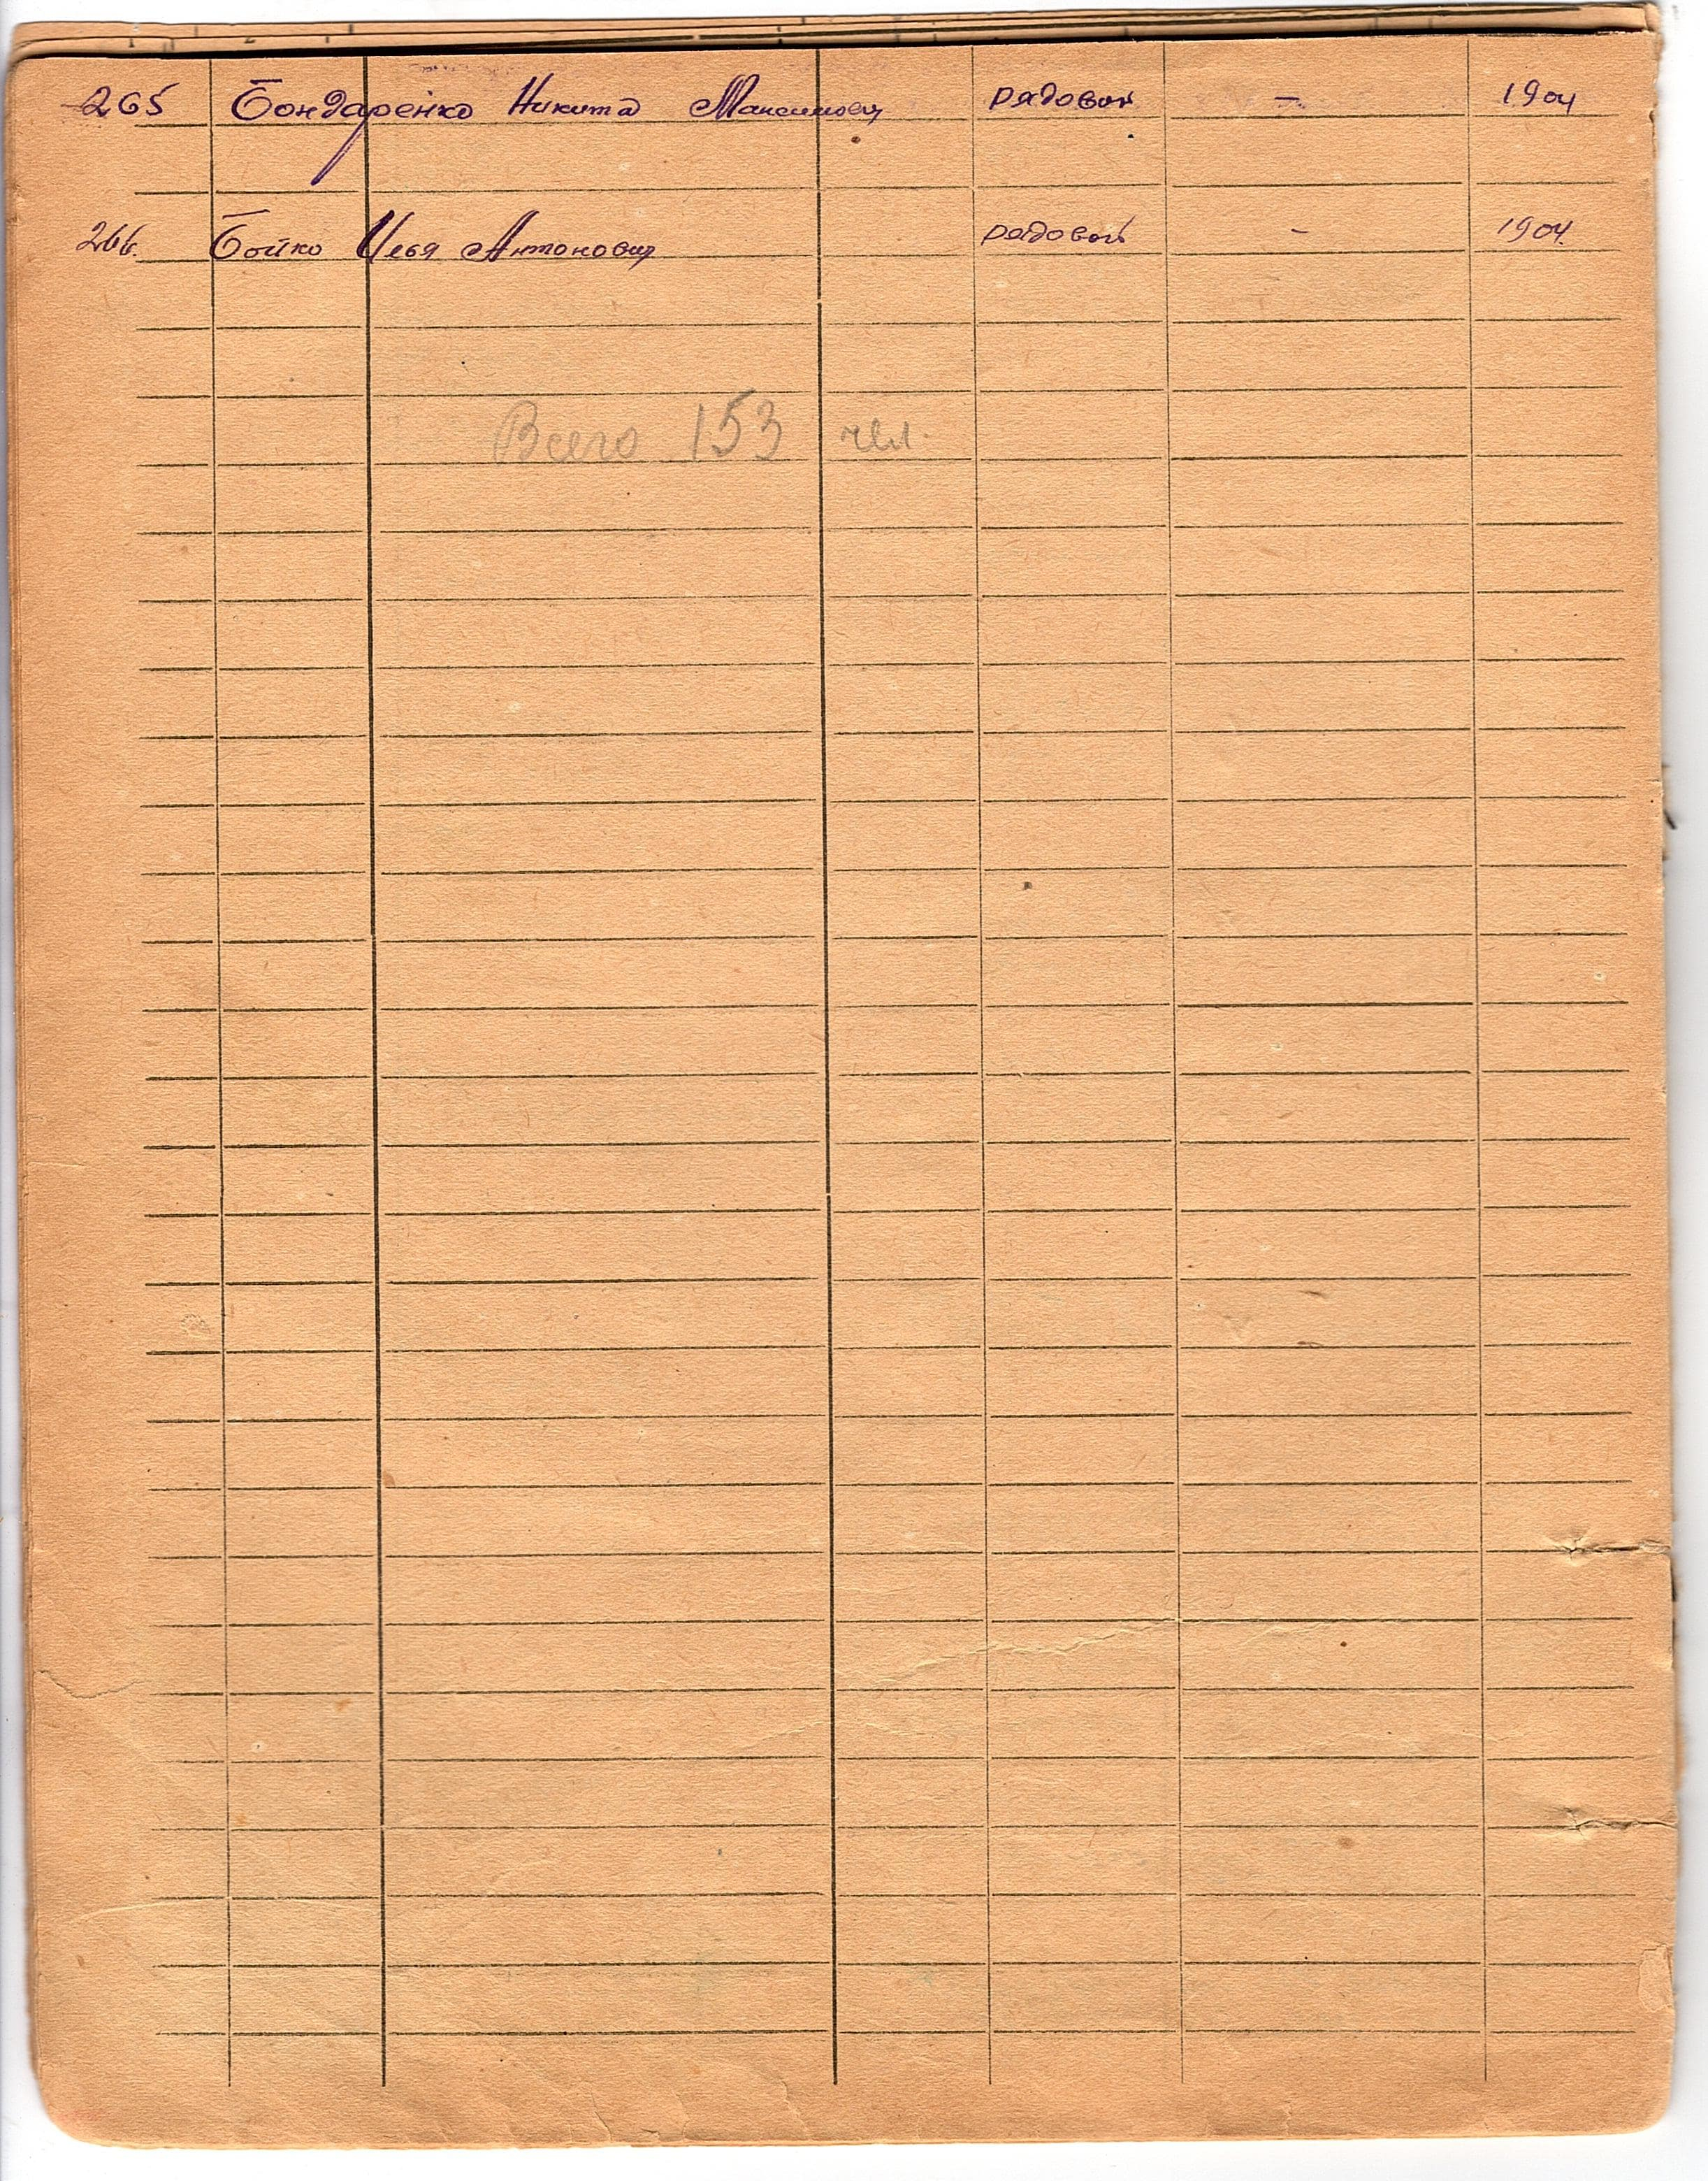 265 Бондаренко Никита Максимович рядовой – 1904
266. Бойко Илья Антонович рядовой – 1904.
Всего 153 чел.